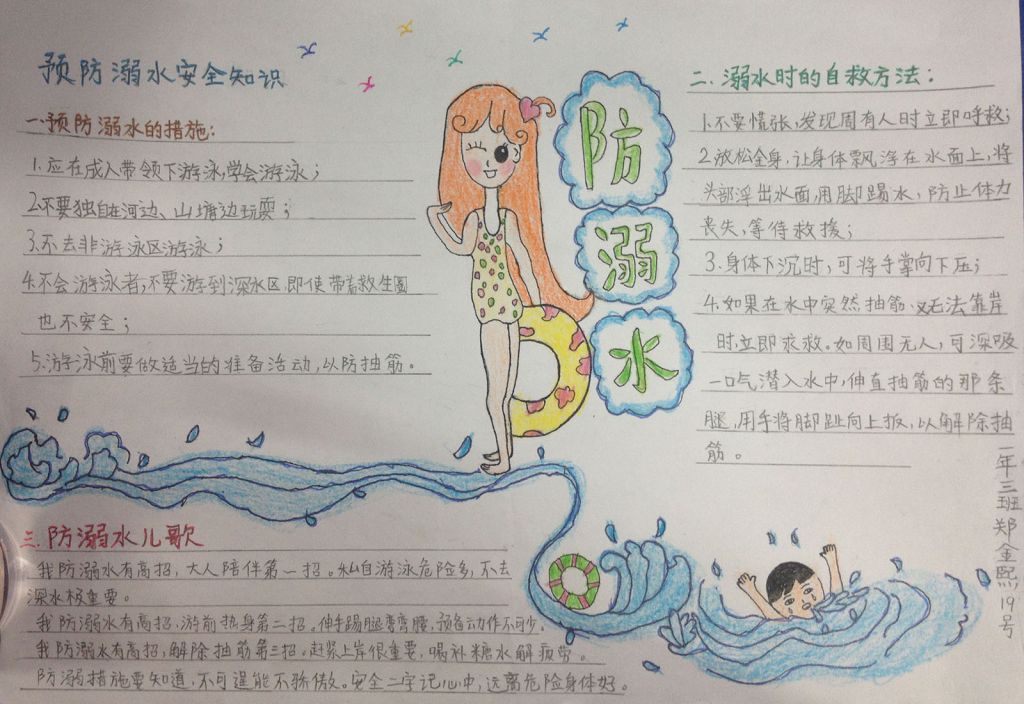 预防溺水安全知识
一.预防溺水的措施:
1.应在成人带领下游泳,学会游泳;
2.不要独自在河边、山塘边玩耍;
3.不去非游泳区游泳;
4.不会游泳者,不要游到深水区,即使带着救生圈
也不安全;
5.游泳前要做适当的准备活动,以防抽筋。
防
溺
水
二.溺水时的自救方法:
1.不要慌张,发现周有人时立即呼救;
2.放松全身,让身体飘浮在水面上,将
头部浮出水面,用脚踢水,防止体力
丧失,等待救援;
3.身体下沉时,可将手掌向下压;
4.如果在水中突然抽筋,又无法靠岸
时,立即求救。如周围无人,可深吸
一口气潜入水中,伸直抽筋的那条
腿,用手将脚趾向上扳,以解除抽
筋。
三.防溺水儿歌
我防溺水有高招,大人陪伴第一招。私自游泳危险多,不去
深水极重要。
我防溺水有高招,游前热身第二招。伸手踢腿弯弯腰,预备动作不可少。
我防溺水有高招,解除抽筋第三招。赶紧上岸很重要,喝补糖水解疲劳。
防溺措施要知道,不可逞能不骄傲。安全二字记心中,远离危险身体好。
二年三班郑金熙19号